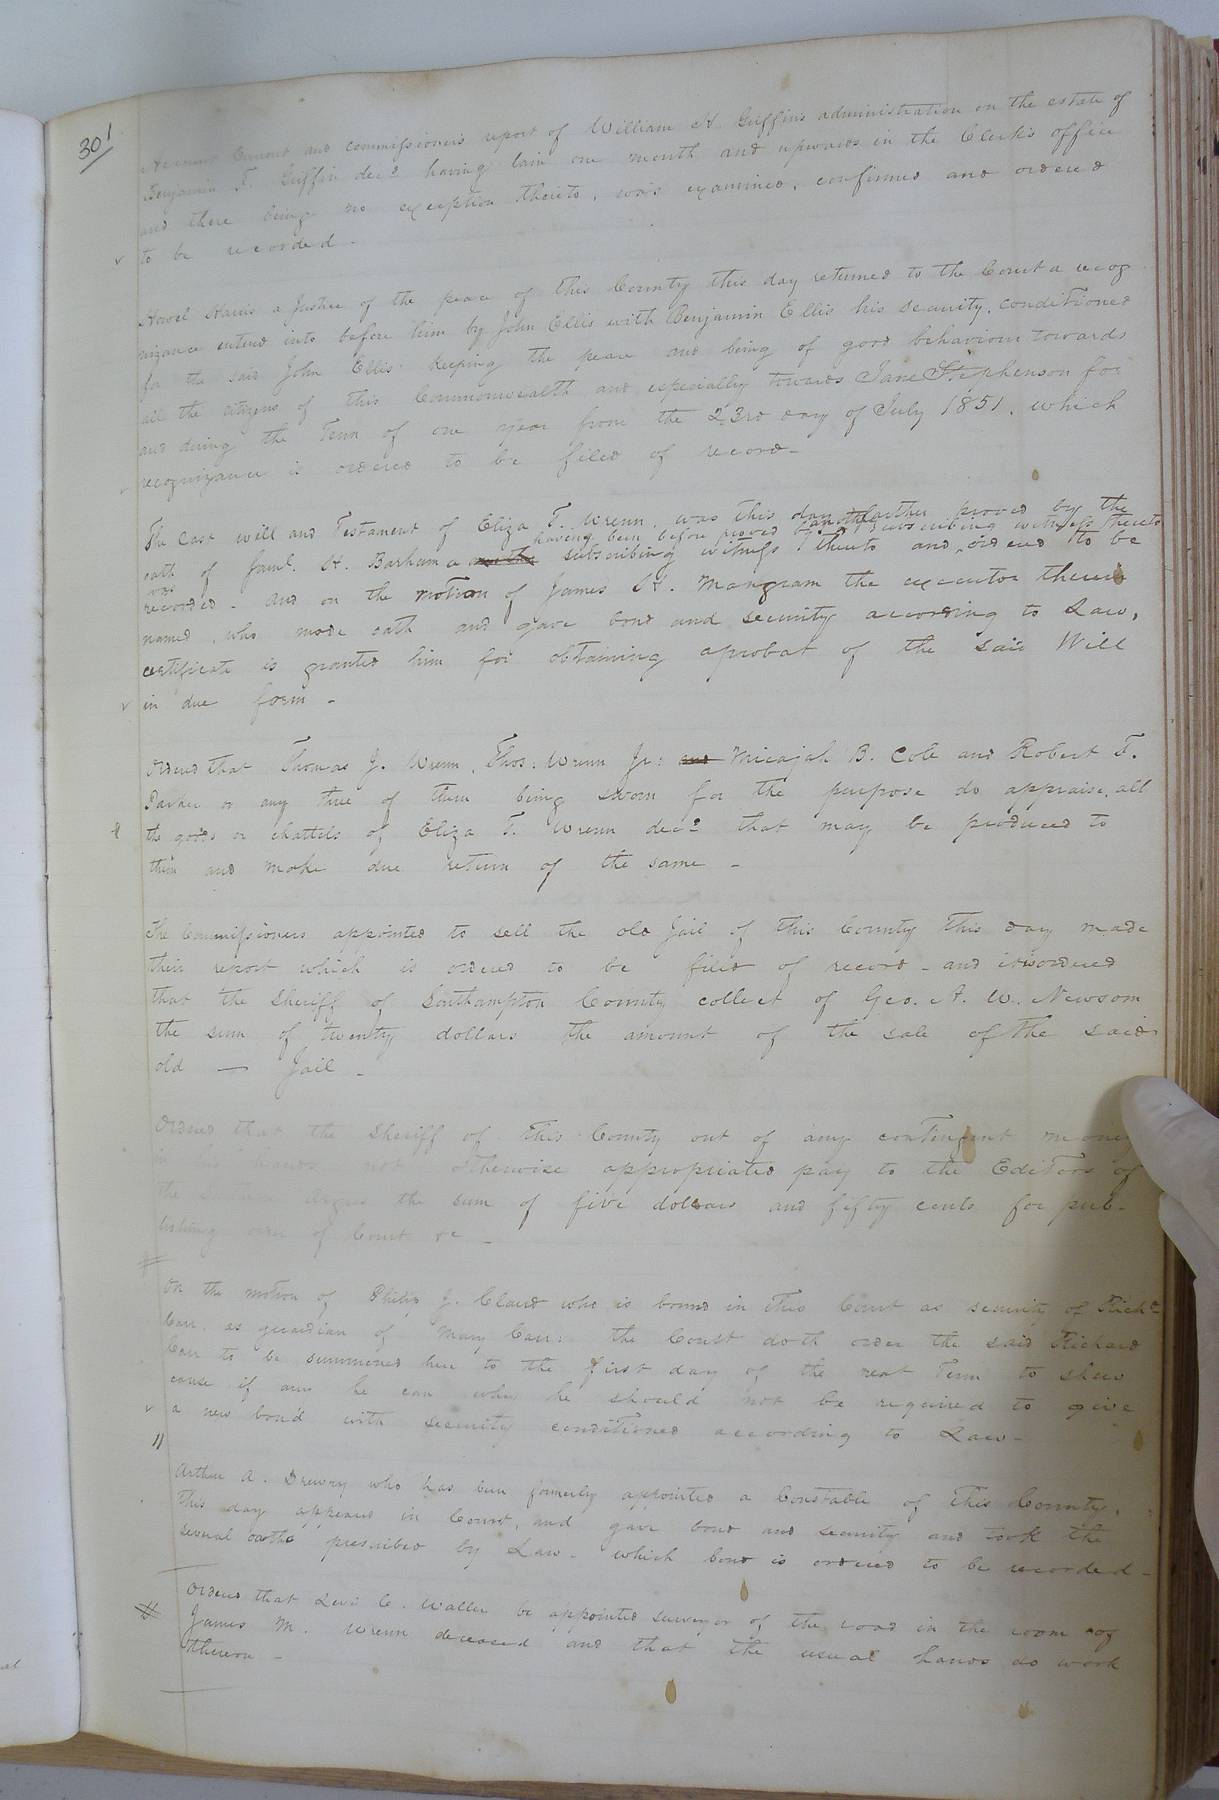 301
Account Current and commissioners report of William H. Griffins administration on the estate of
Benjamin F. Griffin decd having lain one month and upwards in the Clerk's office
and there being no exception thereto, was examined, confirmed and ordered
to be recorded -
Howel Harris a Justice of the peace of this County this day returned to the Court a recog
nizance entered into before him by John Ellis with Benjamin Ellis his security, conditioned
for the said John Ellis keeping the peace and being of good behaviour towards
all the citizens of this Commonwealth and especially towards Jane Stephenson for
and during the Term of one year from the 23rd day of July 1851. which
recognizance is ordered to be filed of record -
The Last will and Testament of Eliza T. Wrenn, was this day farther proved by the
having been before proved by another subscribing witness thereto
oath of Jaml. H. Barham a subscribing witness thereto and ordered to be
was
recorded - And on the motion of James H. Mangram the executor therein
named, who made oath and gave bond and security according to Law,
certificate is granted him for obtaining a probat of the said Will
in due form -
Ordered that Thomas J. Wrenn, Thos. Wrenn Jr: and Micajah B. Cole and Robert T.
Parker or any three of them being sworn for the purpose do appraise, all
the goods or chattels of Eliza T. Wrenn decd that may be produced to
them and make due return of the same -
The Commissioners appointed to sell the old Jail of this County this day made
their report which is ordered to be filed of record - and it is ordered
that the Sheriff of Southampton County collect of Geo. A. W. Newsom
the sum of twenty dollars the amount of the sale of the said
old — Jail -
Ordered that the Sheriff of this County out of any contingent money
in his hands not otherwise appropriated pay to the Editors of
the Southern Argus the sum of five dollars and fifty cents for pub-
lishing order of Court &c -
On the motion of Philip J. Claud who is bound in this Court as security of Richd
Carr as guardian of Mary Carr: the Court doth order the said Richard
Carr to be summoned here to the first day of the next Term to shew
cause if any he can why he should not be required to give
a new bond with security conditioned according to Law -
Arthur A. Drewry who has been formerly appointed a Constable of this County,
this day appeared in Court, and gave bond and security and took the
several oaths prescribed by Law - which bond is ordered to be recorded -
Ordered that Levi C. Waller be appointed surveyor of the road in the room of
James M. Wrenn deceased and that the usual hands do work
thereon -